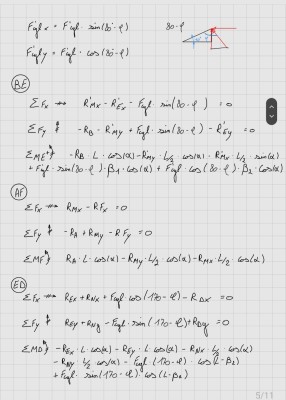 Fcylx = Fcyl · sin(80-φ)
80-φ
Fcyly = Fcyl · cos(80-φ)
BE
ΣFx R'Mx - R'Ex - Fcyl · sin(80-φ) = 0
ΣFy -RB - R'My + Fcyl · sin(80-φ) - R'Ey = 0
ΣME -RB · L · cos(α) - R'My · L/2 · cos(α) · R'Mx · L/2 · sin(α)
+ Fcyl · sin(80-φ) · β1 · cos(α) + Fcyl · cos(80-φ) · β2 · cos(α)
AF
ΣFx RMx - RFx = 0
ΣFy -RA + RMy - RFy = 0
ΣMF RA · L · cos(α) - RMy · L/2 · cos(α) - RMx · L/2 · cos(α)
ED
ΣFx REx + RNx + Fcyl · cos(170-φ) - RDx = 0
ΣFy REy + RNy - Fcyl · sin(170-φ) + RDy = 0
ΣMD -REx · L · cos(α) - REy · L · cos(α) - RNx · L/2 · cos(α)
- RNy · L/2 · cos(α) - Fcyl · (170-φ) · cos(L-β2)
+ Fcyl · sin(170-φ) · cos(L-β2)
5/11